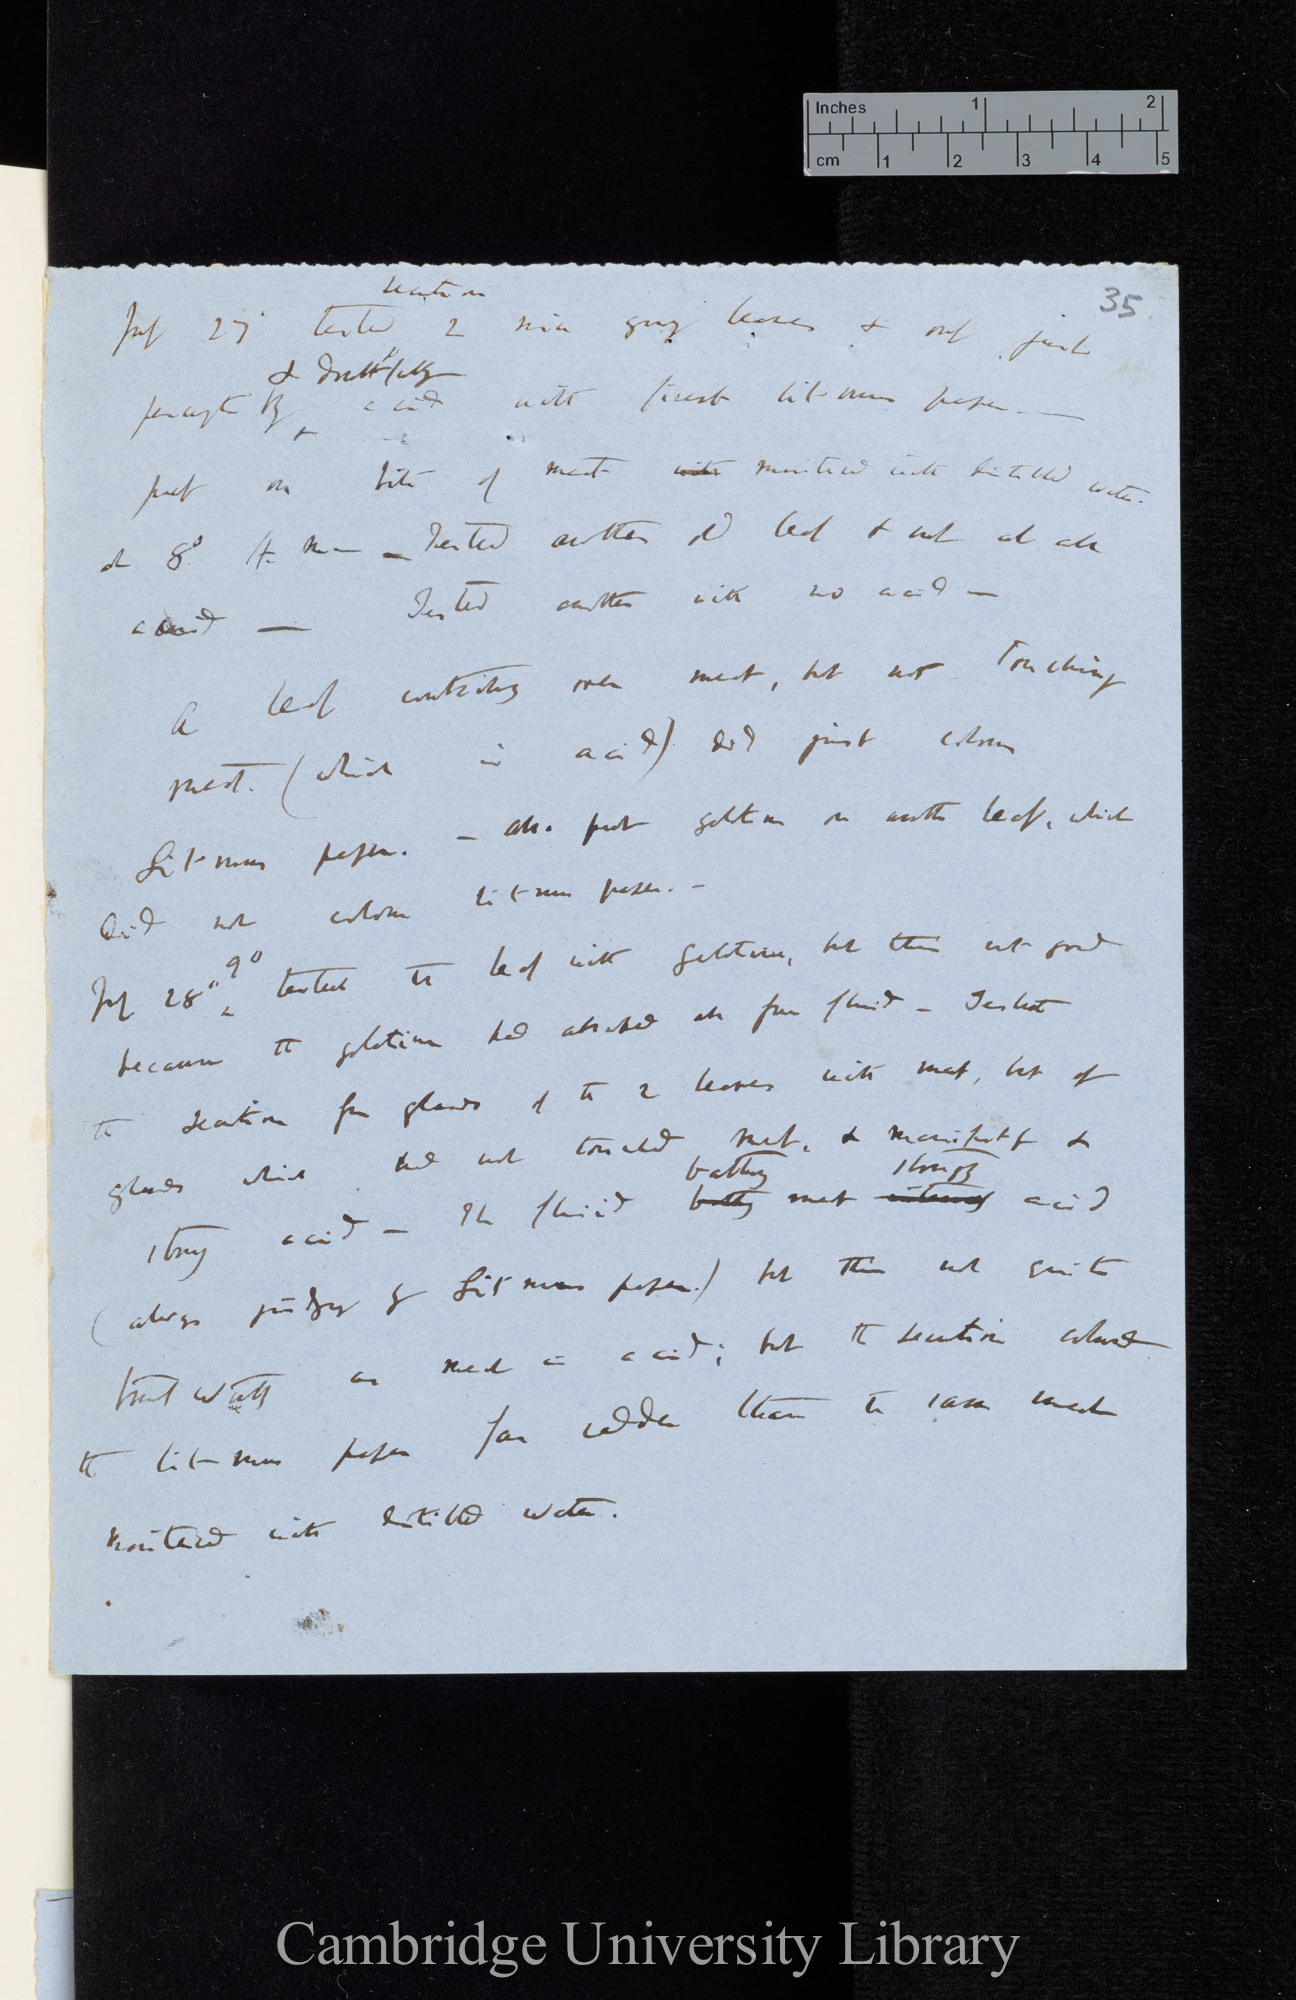 Inches 1 2
cm 1 2 3 4 5
35
secretion
July 27 tested 2 nice young leaves & only just
& doubtfully
perceptibly acid with finest litmus paper —
put on bits of meat with moistened with distilled water.
at 8° A. M — Tested another old leaf & not at all
acid — Tested another with no acid —
A leaf contracting over meat, but not touching
meat. (which is acid) did just colour
Litmus paper. — also put gelatine on another leaf, which
did not colour litmus paper. —
9°
July 28° tested the leaf with gelatine, but this not good
because the gelatine had absorbed all free fluid — Tested
the secretion from glands of the 2 leaves with meat, but of
glands which had not touched meat, & manifestly &
bathing strongly
strongly acid — The fluid meat acid
(always judging by Litmus paper.) but this not quite
trustworthy as meat is acid; but the secretion coloured
the litmus paper far redder than the same meat
moistened with distilled water.
Cambridge University Library